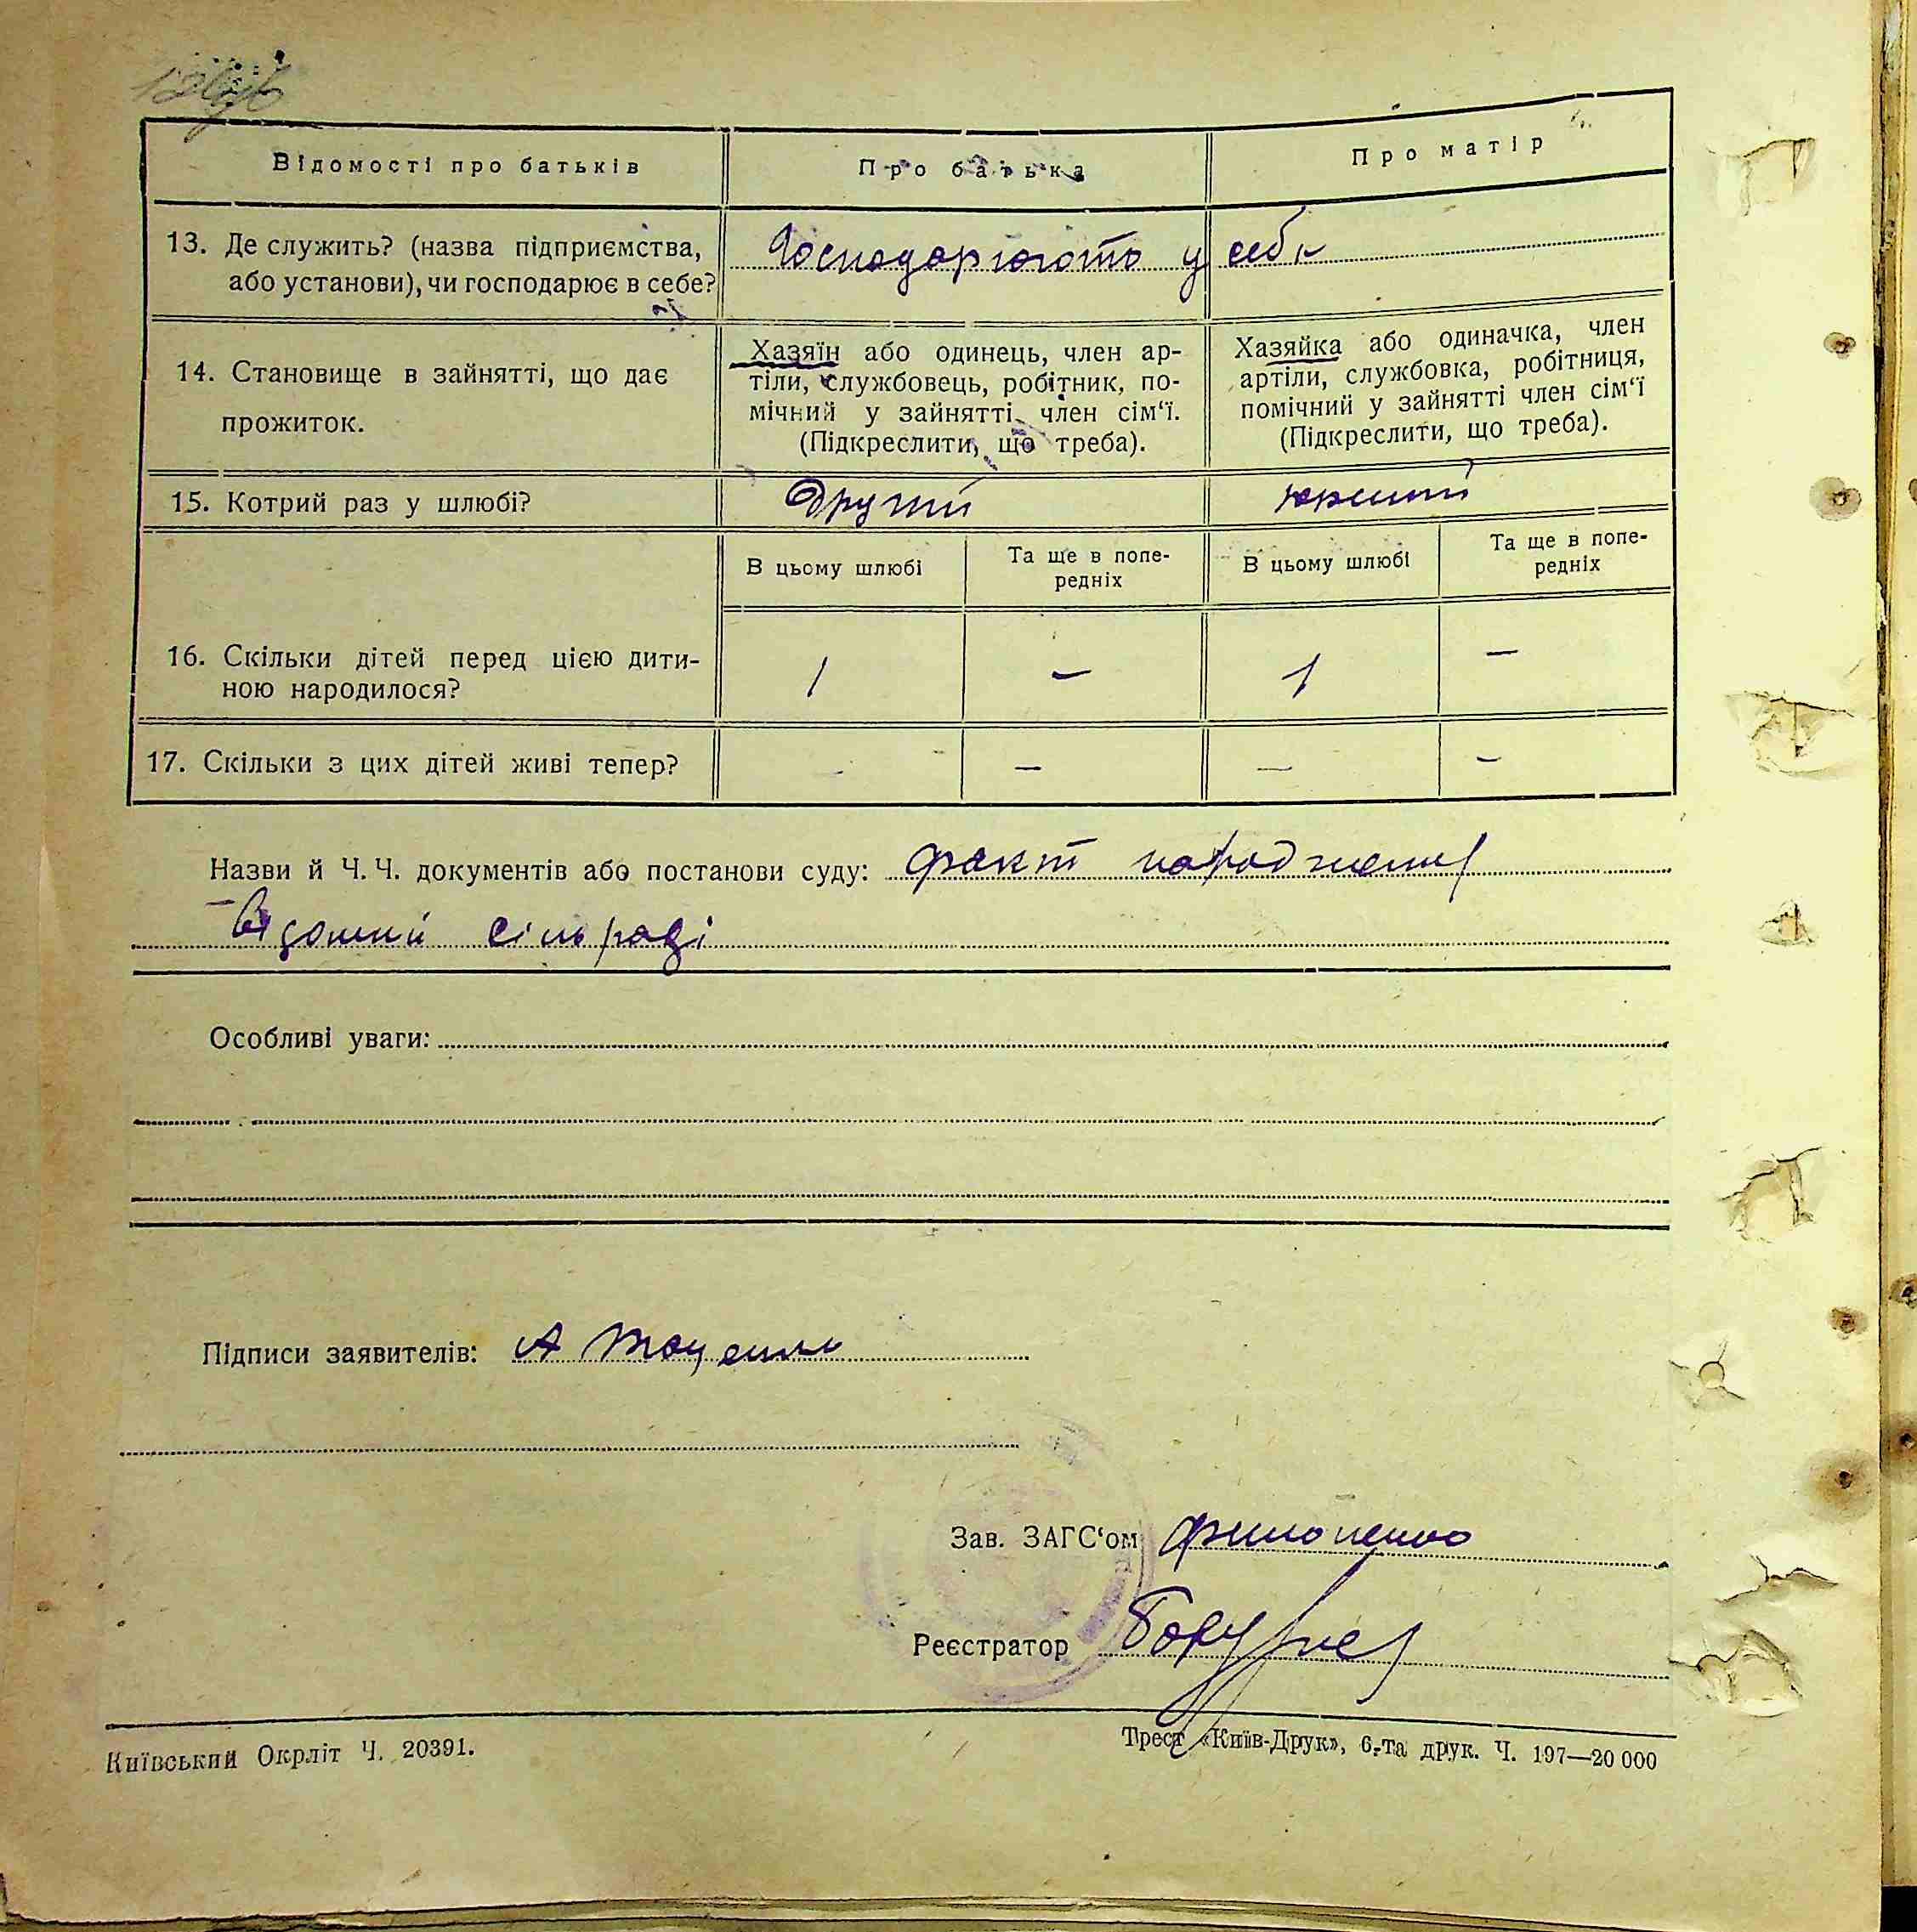 Відомості про батьків
Про батька
Про матір
13. Де служить? (назва підприємства,
або установи), чи господарює в себе?
Господарюють у себе
14. Становище в зайнятті, що дає
прожиток.
Хазяїн або одинець, член ар-
тіли, службовець, робітник, по-
мічний у зайнятті член сім‘ї.
(Підкреслити, що треба).
Хазяйка або одиначка, член
артіли, службовка, робітниця,
помічний у зайнятті член сім‘ї
(Підкреслити, що треба).
15. Котрий раз у шлюбі?
Другий
перший
В цьому шлюбі
Та ще в попе-
редніх
В цьому шлюбі
Та ще в попе-
редніх
16. Скільки дітей перед цією дити-
ною народилося?
1 — 1 —
17. Скільки з цих дітей живі тепер?
— — — —
Назви й Ч. Ч. документів або постанови суду: факт народження
відомий сільраді
Особливі уваги:
Підписи заявителів: А
Зав. ЗАГС‘ом
Реєстратор
Київський Окрліт Ч. 20391.
Трест «Київ-Друк», 6-та друк. Ч. 197—20 000